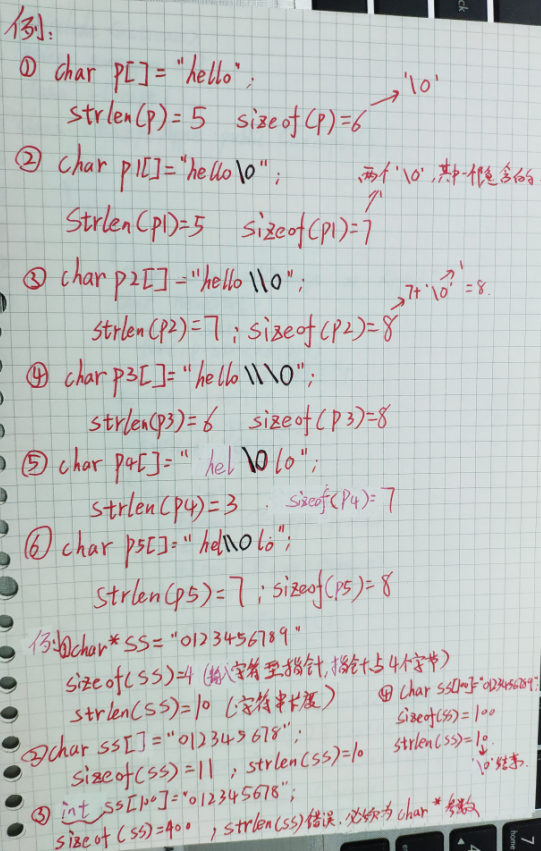 例:
① char p[] = "hello";
'\0'
strlen(p) = 5 sizeof(p)=6
② char p1[]="hello\0";
两个'\0',其中一个包含的
Strlen(p1)=5 sizeof(p1)=7
③ char p2[] ="hello\\0";
7+'\0'=8.
strlen(p2)=7; sizeof(p2)=8
④ char p3[]="hello\\\0";
strlen(p3)=6 sizeof(p3)=8
⑤ char p4[]=" hel\0lo";
strlen(p4)=3 sizeof(p4)=7
⑥ char p5[]="hel\\0lo";
strlen(p5)=7; sizeof(p5)=8
例:①char*ss="0123456789"
sizeof(ss)=4 (字符型指针,指针占4个字节)
strlen(ss)=10 (字符串长度)
④ char ss[100]="0123456789";
sizeof(ss)=100
strlen(ss)=10.
'\0'结束.
②char ss[]="012345678";
sizeof(ss)=11, strlen(ss)=10
③ int ss[100]="012345678";
sizeof(ss)=400, strlen(ss)错误,必须为char*参数